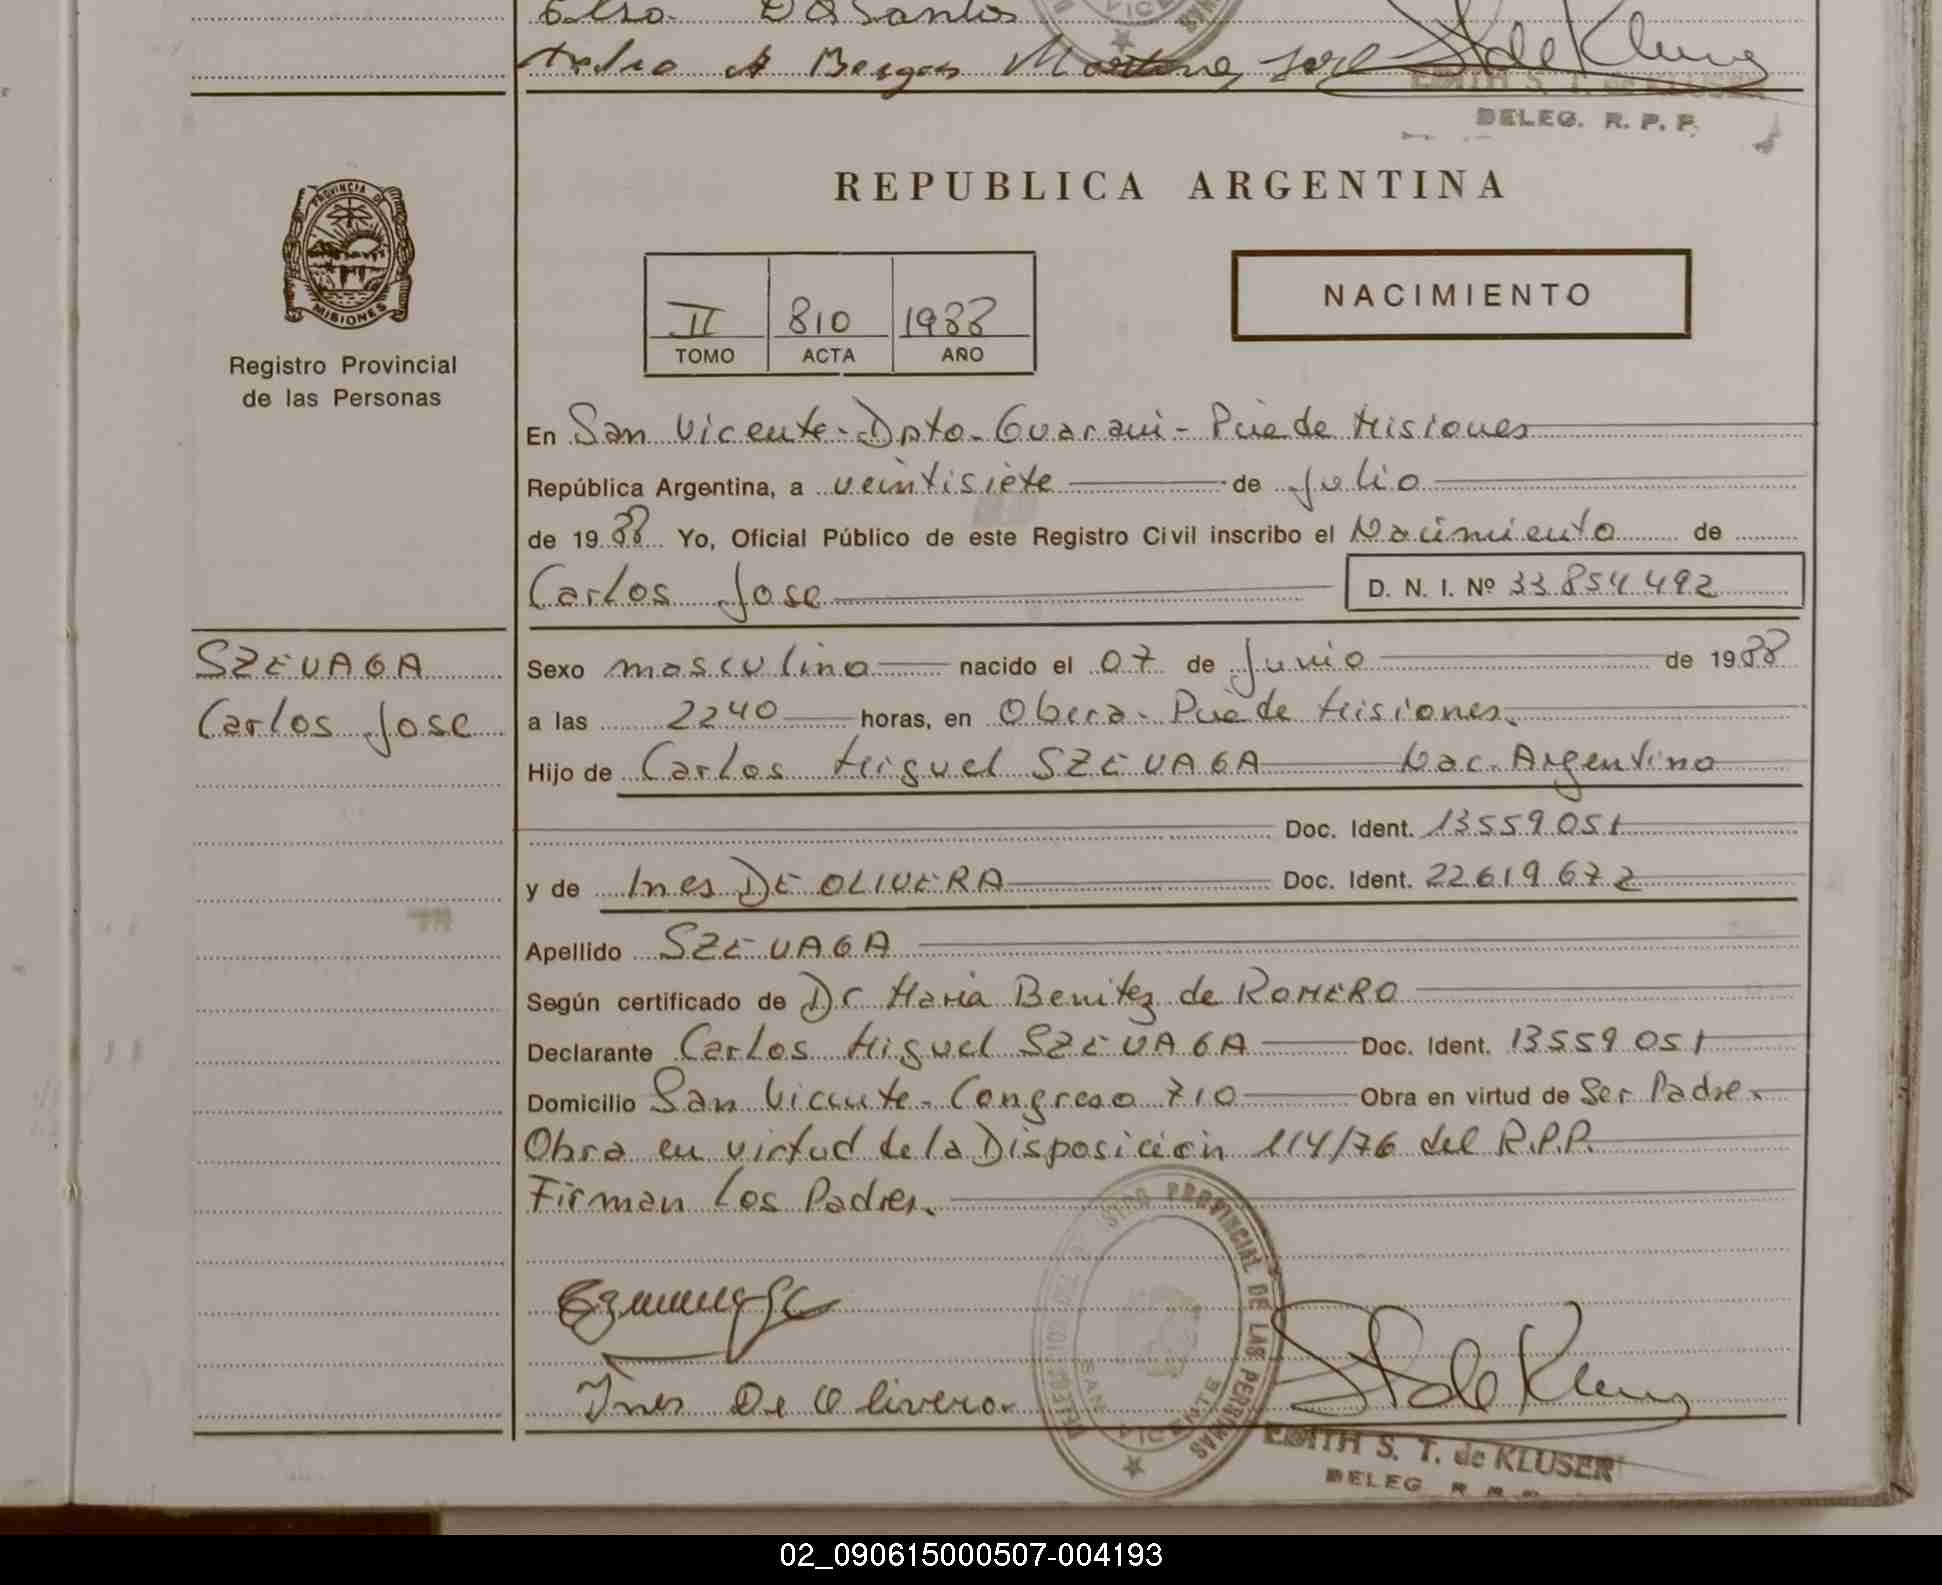 Elsa Da Santos
Pedro A Borges Martinez, José
EDITH S. T. de KLUSER
DELEG. R. P. P.
PROVINCIA DE
MISIONES
Registro Provincial
de las Personas
REPUBLICA ARGENTINA
II 810 1988
TOMO ACTA AÑO
NACIMIENTO
En San Vicente-Dpto. Guarani - Pcia de Misiones
República Argentina, a veintisiete de Julio
de 19 88 Yo, Oficial Público de este Registro Civil inscribo el Nacimiento de
Carlos Jose D. N. I. Nº 33.854.492
SZEVAGA
Carlos Jose
Sexo masculino nacido el 07 de Junio de 1988
a las 2240 horas, en Obera - Pcia de Misiones.
Hijo de Carlos Miguel SZEVAGA Nac. Argentina
Doc. Ident. 13559.051
y de Ines DE OLIVERA Doc. Ident. 22.619.672
Apellido SZEVAGA
Según certificado de Dr Maria Benitez de ROMERO
Declarante Carlos Miguel SZEVAGA Doc. Ident. 13559.051
Domicilio San Vicente - Congreso 710 Obra en virtud de Ser Padre.
Obra en virtud de la Disposición 114/76 del R.P.P.
Firman Los Padres.
PROVINCIAL DE LAS PERSONAS
SAN VICENTE
Ines De Olivera
EDITH S. T. de KLUSER
DELEG. R. P. P.
02_090615000507-004193